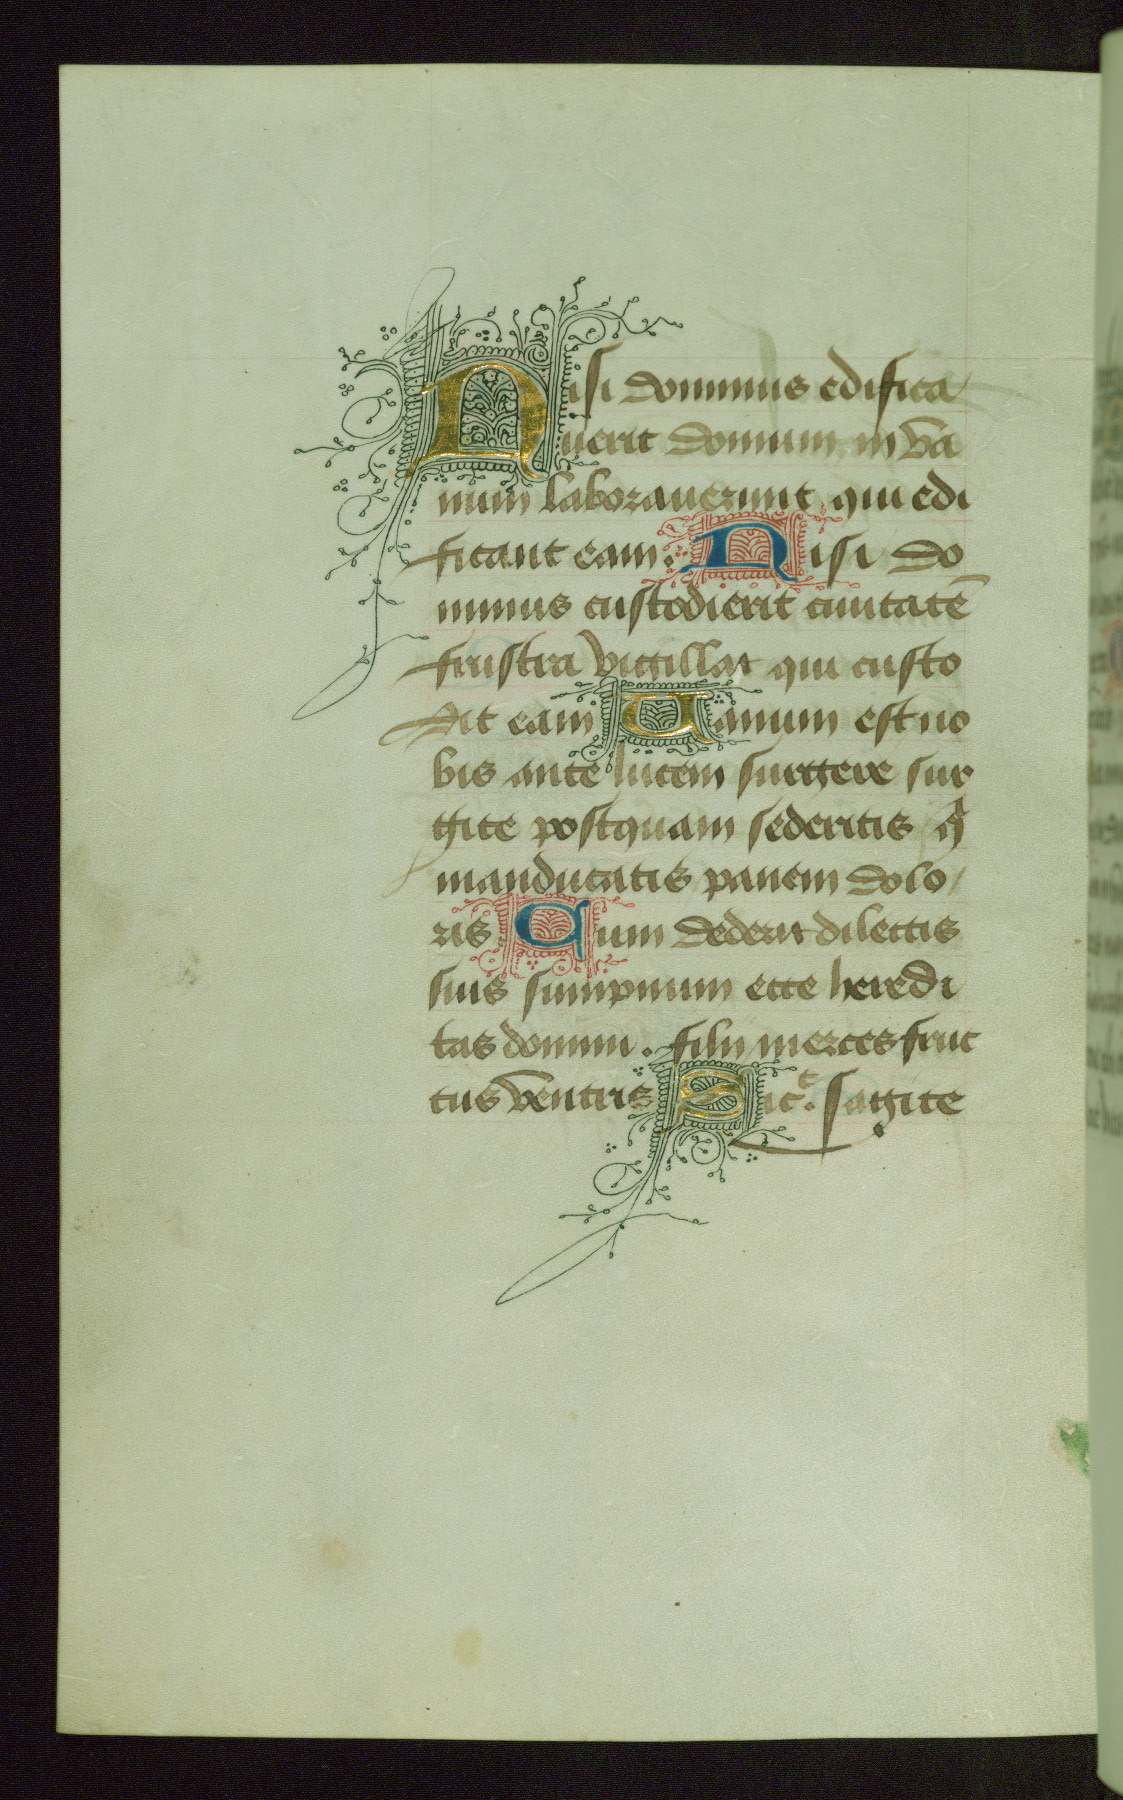 Nisi dominus edifica
uerit domum in va
num laborauerunt qui edi
ficant eam. Nisi do
minus custodierit ciuitatē
frustra vigillat qui custo
dit eam Uanum est uo
bis ante lucem surgere sur
gite postquam sederitis q̄
manducatis panem dolo
ris Cum dederit dilectis
suis sumpnum ecce heredi
tas domini. filii merces fruc
tus ventris Sicᵗ. sagite